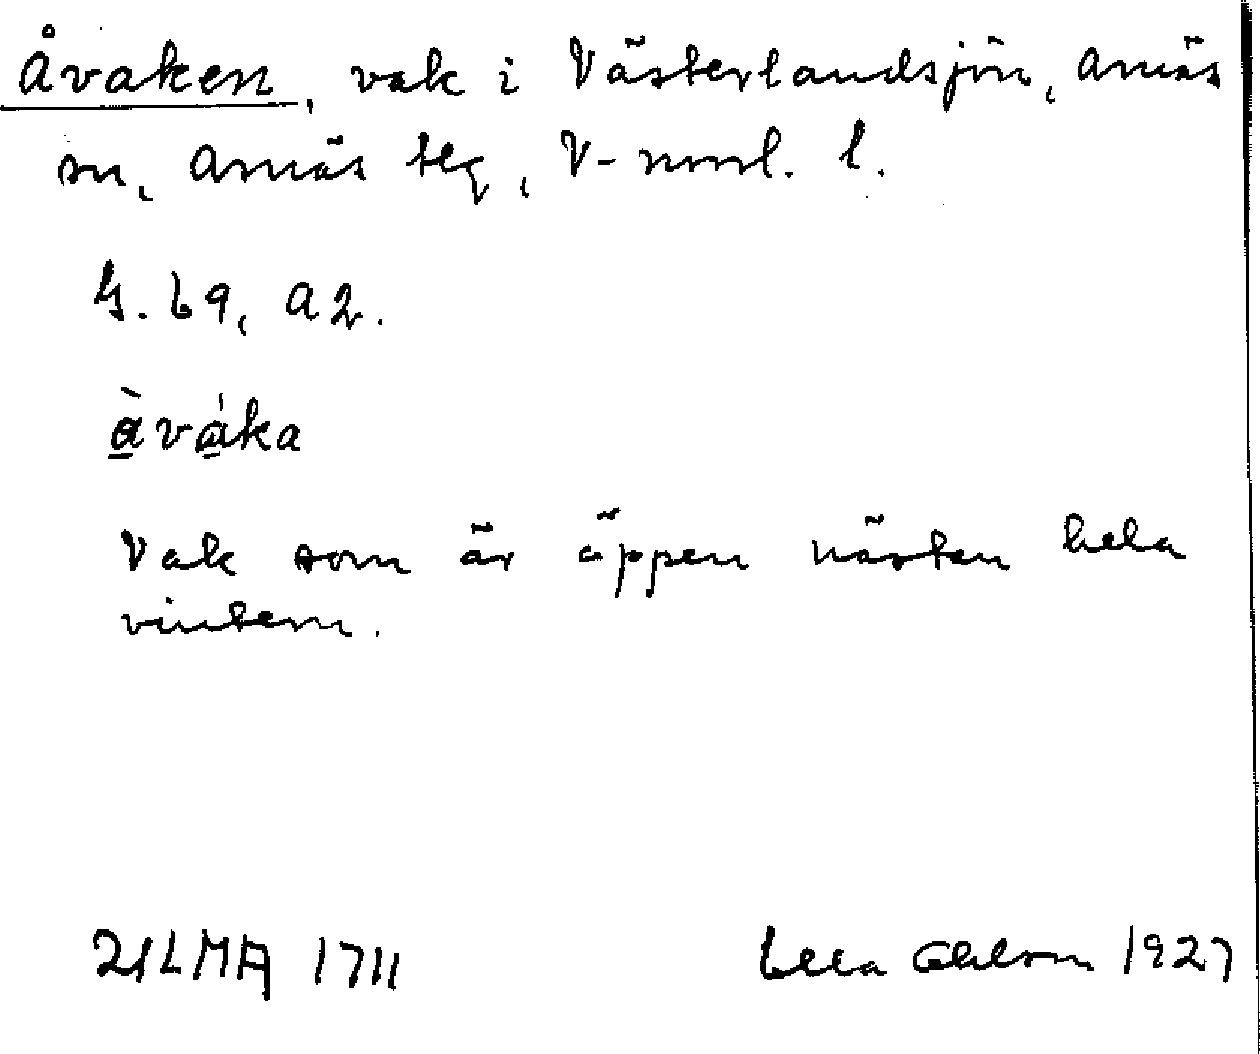 Åvaken, vak i Västerlandsjön, Arnäs
sn, Arnäs tlg, V-norrl. l.
G. 69, A2.
åvåka
Vak som är öppen nästan hela
vintern.
21LMA 1711 Ohlson 1927